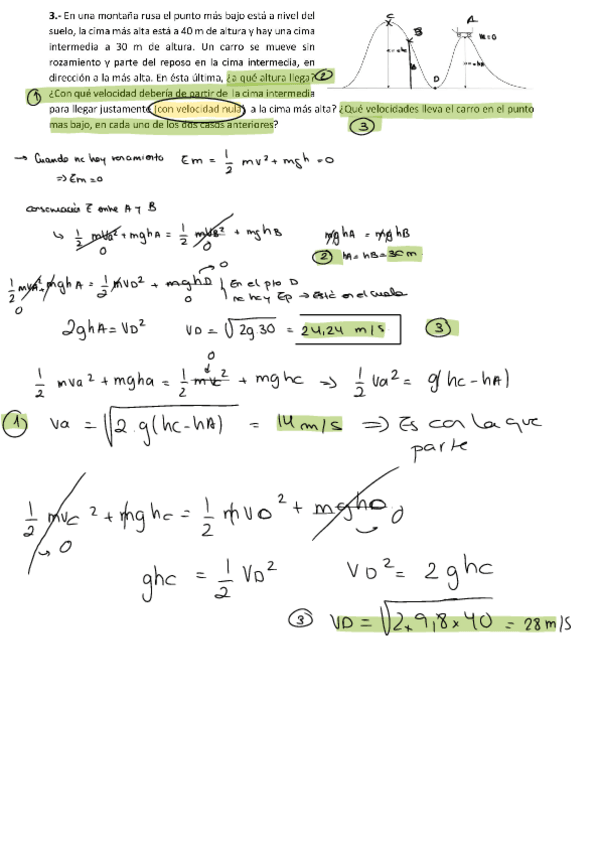 3.- En una montaña rusa el punto más bajo está a nivel del
suelo, la cima más alta está a 40 m de altura y hay una cima
intermedia a 30 m de altura. Un carro se mueve sin
rozamiento y parte del reposo en la cima intermedia, en
dirección a la más alta. En ésta última, ¿a qué altura llega? 2
1 ¿Con qué velocidad debería de partir de la cima intermedia
para llegar justamente (con velocidad nula) a la cima más alta? ¿Qué velocidades lleva el carro en el punto
mas bajo, en cada uno de los dos casos anteriores?
3
C
B
A
D
→ Cuando no hay rozamiento Em = 1/2 mv² + mgh = 0
⇒ Em = 0
conservación E entre A y B
↳ 1/2 mVa² + mghA = 1/2 mVB² + mghB
0 0
mghA = mghB
2 hA = hB = 30 m
1/2 mVA² + mghA = 1/2 mVD² + mghD → 0
0 0
En el pto D
no hay Ep → Está en el suelo
2ghA = VD² VD = √2g.30 = 24,24 m/s 3
0
1/2 mva² + mgha = 1/2 mvc² + mghc ⇒ 1/2 Va² = g(hc - hA)
1 Va = √2.g(hc - hA) = 14 m/s ⇒ Es con la que
parte
1/2 mvc² + mghc = 1/2 mVD² + mghD 0
↳ 0
ghc = 1/2 VD² VD² = 2ghc
3 VD = √2×9,8×40 = 28 m/s